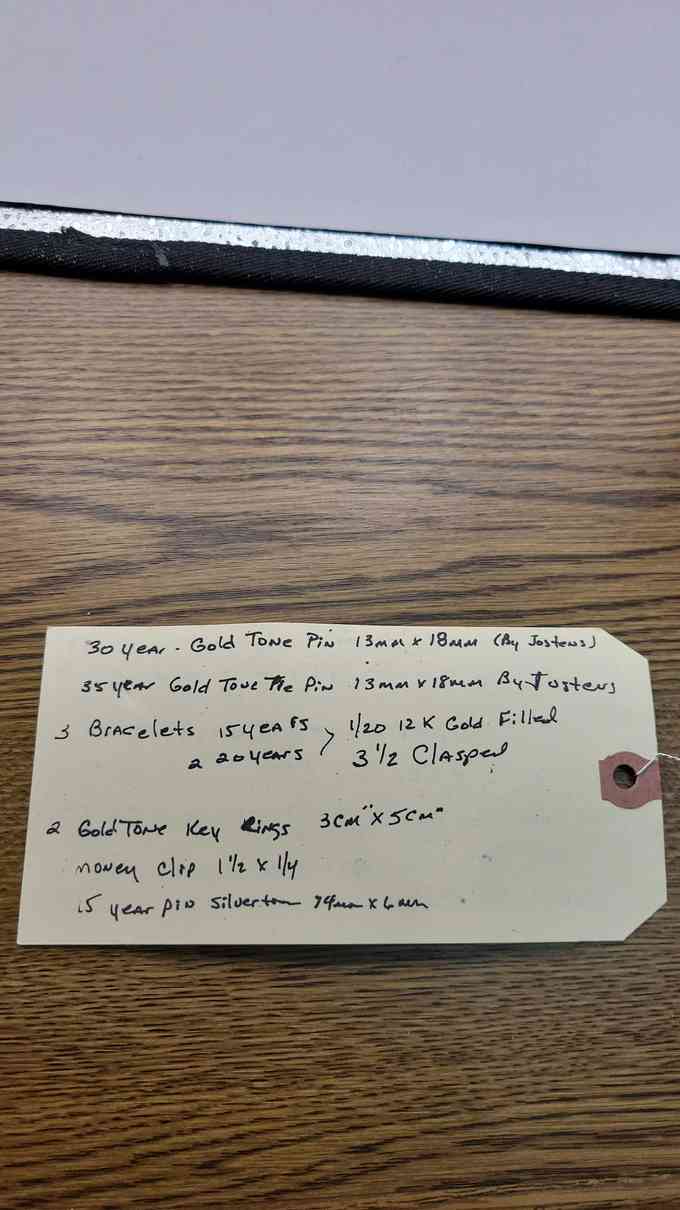 30 year - Gold Tone Pin 13mm x 18mm (By Jostens)
35 year Gold Tone Tie Pin 13mm x 18mm By Jostens
3 Bracelets 15 years > 1/20 12 K Gold Filled
2 20 years 3 1/2 Clasped
2 Gold Tone Key Rings 3cm" x 5cm"
money clip 1 1/2 x 1/4
15 year pin silvertone x 6mm